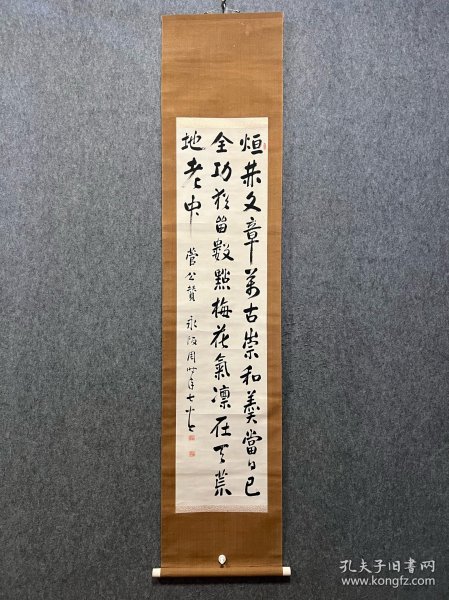 烜赫文章萬古崇和羹當日已
全功留數點梅花氣凛在天荒
地老中
菅公賛 永阪周時年七十七
孔夫子旧书网
www.kongfz.com